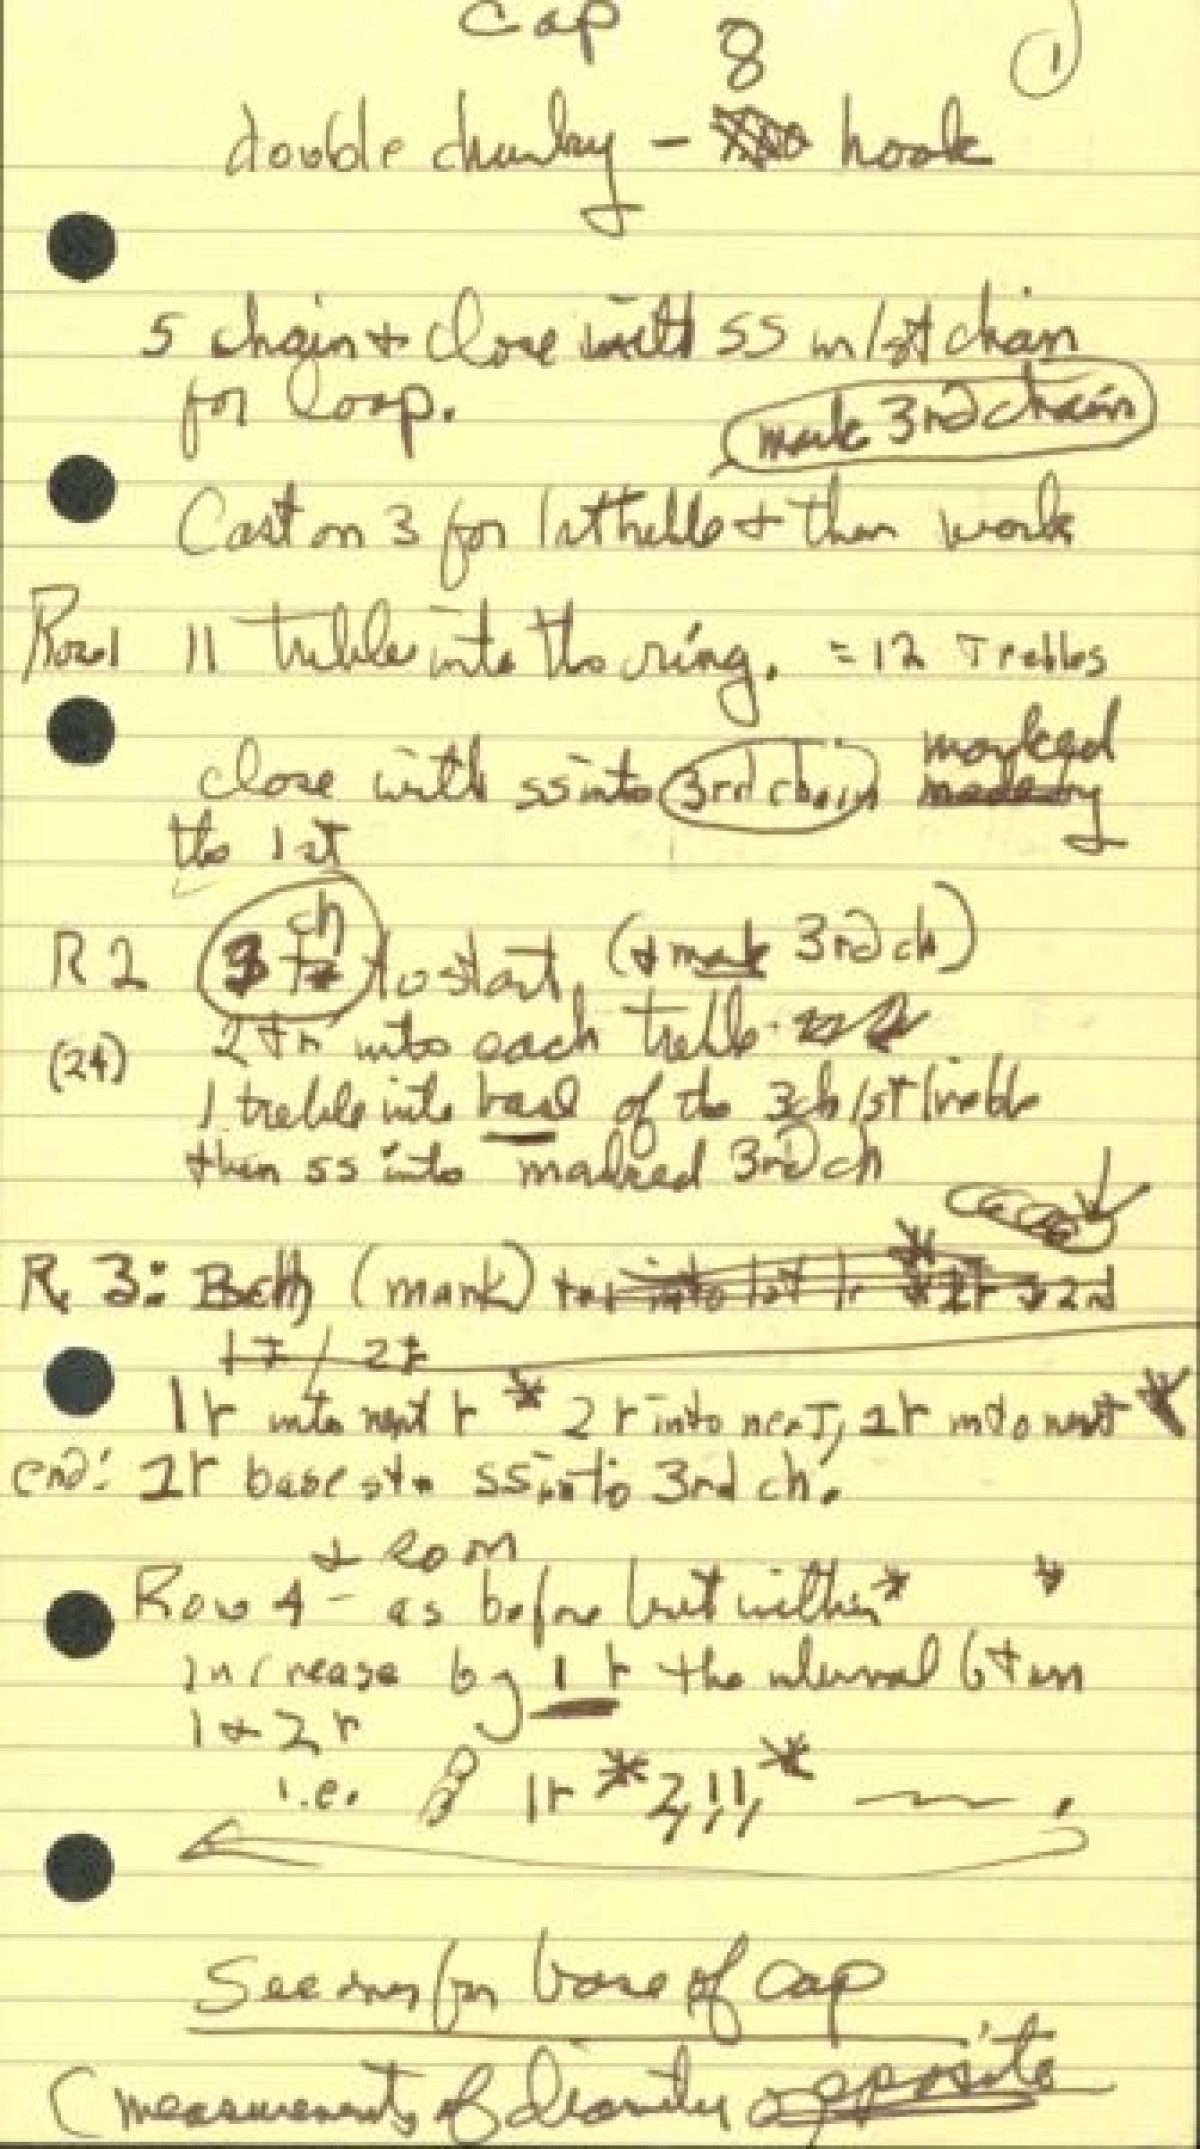 Cap
8
①
double chunky - hook
5 chain + close with ss in 1st chain
for loop.
mark 3rd chain
Cast on 3 for 1st treble + then work
Row 1 11 treble into the ring. = 12 Trebles
close with ss into 3rd chain marked
made by
the 1st
R 2 3 ch to start (+ mark 3rd ch)
2 tr into each treble
(24)
1 treble into base of the 3ch 1st treble
then ss into marked 3rd ch
R 3: (mark)
1r into next r * 2r into next, 1r into next *
end: 1r base st + ss into 3rd ch.
+ so on
Row 4 - as before but within * *
increase by 1 r the interval btwn
1 + 2 r
i.e. 1r * 2,1,1, *
See over for base of cap
(measurements of opposite